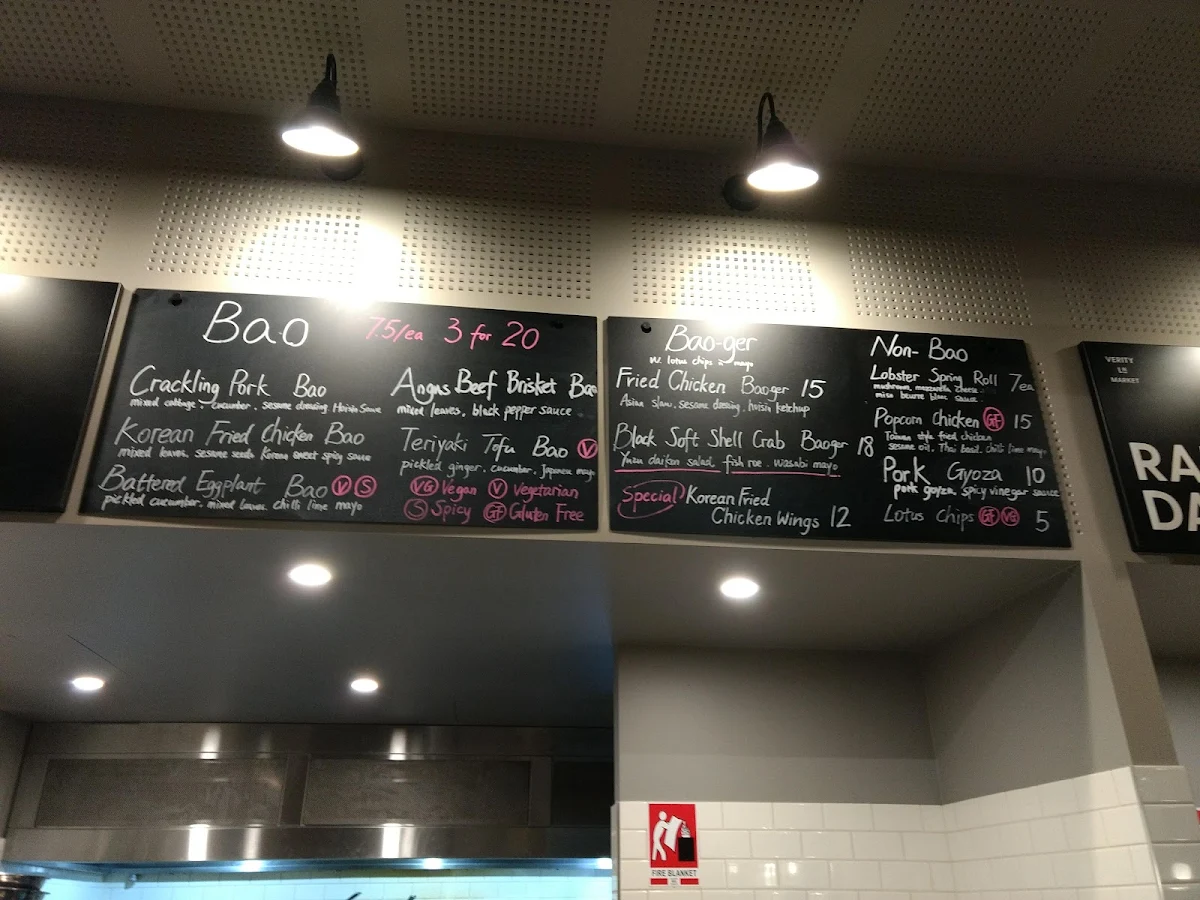 Bao 7.5/ea 3 for 20
Crackling Pork Bao
mixed cabbage, cucumber, sesame dressing, Hoisin Sauce
Korean Fried Chicken Bao
mixed leaves, sesame seeds Korean sweet spicy sauce
Battered Eggplant Bao V S
pickled cucumber, mixed leaves, chilli lime mayo
Angus Beef Brisket Bao
mixed leaves, black pepper sauce
Teriyaki Tofu Bao V
pickled ginger, cucumber, Japanese mayo
VG Vegan V Vegetarian
S Spicy GF Gluten Free
Bao-ger
w. lotus chips mayo
Fried Chicken Baoger 15
Asian slaw, sesame dressing, hoisin ketchup
Black Soft Shell Crab Baoger 18
Yuzu daikon salad, fish roe, wasabi mayo
Special Korean Fried
Chicken Wings 12
Non-Bao
Lobster Spring Roll 7ea
mushroom, mozzarella cheese
miso beurre blanc sauce
Popcorn Chicken GF 15
Taiwan style fried chicken
sesame oil, Thai basil, chilli lime mayo
Pork Gyoza 10
pork gyoza, spicy vinegar sauce
Lotus Chips GF VG 5
VERITY
LN
MARKET
RA
DA
FIRE BLANKET